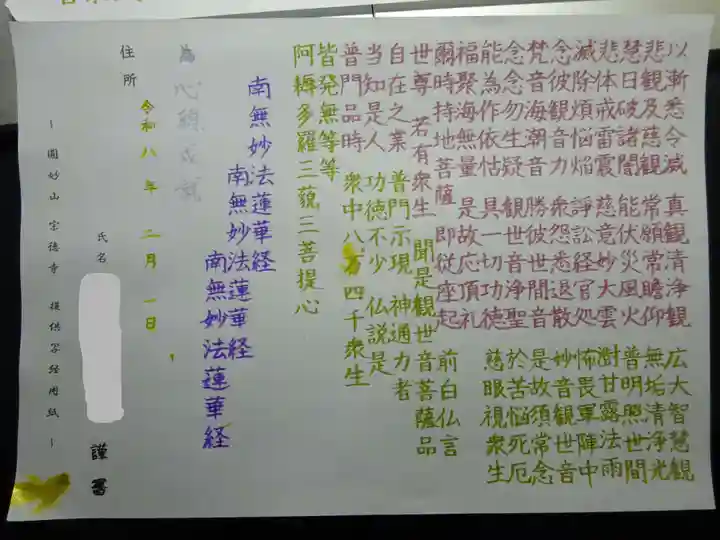 以漸悉令滅 真観清浄観 広大智慧観
悲観及慈観 常願常瞻仰 無垢清浄光
慧日破諸闇 能伏災風火 普明照世間
悲体戒雷震 慈意妙大雲 澍甘露法雨
滅除煩悩焔 諍訟経官処 怖畏軍陣中
念彼観音力 衆怨悉退散 妙音観世音
梵音海潮音 勝彼世間音 是故須常念
念念勿生疑 観世音浄聖 於苦悩死厄
能為作依怙 具一切功徳 慈眼視衆生
福聚海無量 是故応頂礼
爾時持地菩薩 即従座起 前白仏言
世尊 若有衆生 聞是観世音菩薩品
自在之業 普門示現 神通力者
当知是人 功徳不少 仏説是
普門品時 衆中八万四千衆生
皆発無等等
阿耨多羅三藐三菩提心
南無妙法蓮華経
南無妙法蓮華経
南無妙法蓮華経
為 心願成就
令和八年 二月 一日
住所
氏名 謹書
~ 圓妙山 宗徳寺 提供写経用紙 ~